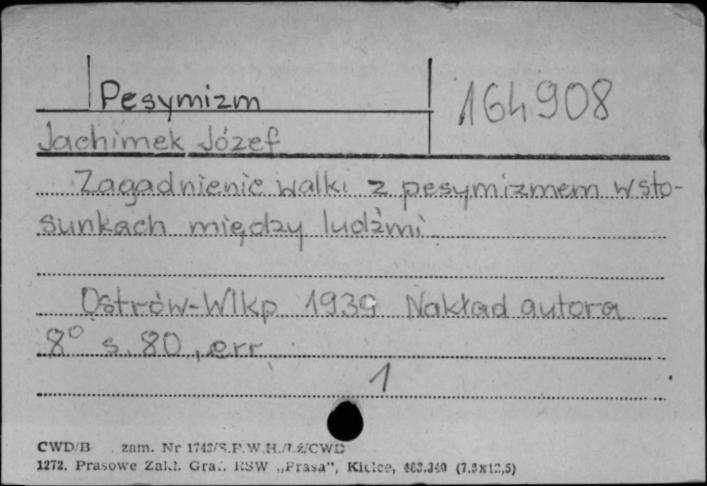 Pesymizm
164908
Jachimek Józef
Zagadnienie walki z pesymizmem w sto-
sunkach między ludźmi.
Ostrów-Wlkp 1939 Nakład autora
8° s. 80, err
1
CWD/B zam. Nr 1743/S.P.W.H./LŹ/CWD
1272, Prasowe Zakł. Graf. RSW „Prasa", Kielce, 463.340 (7,5x12,5)